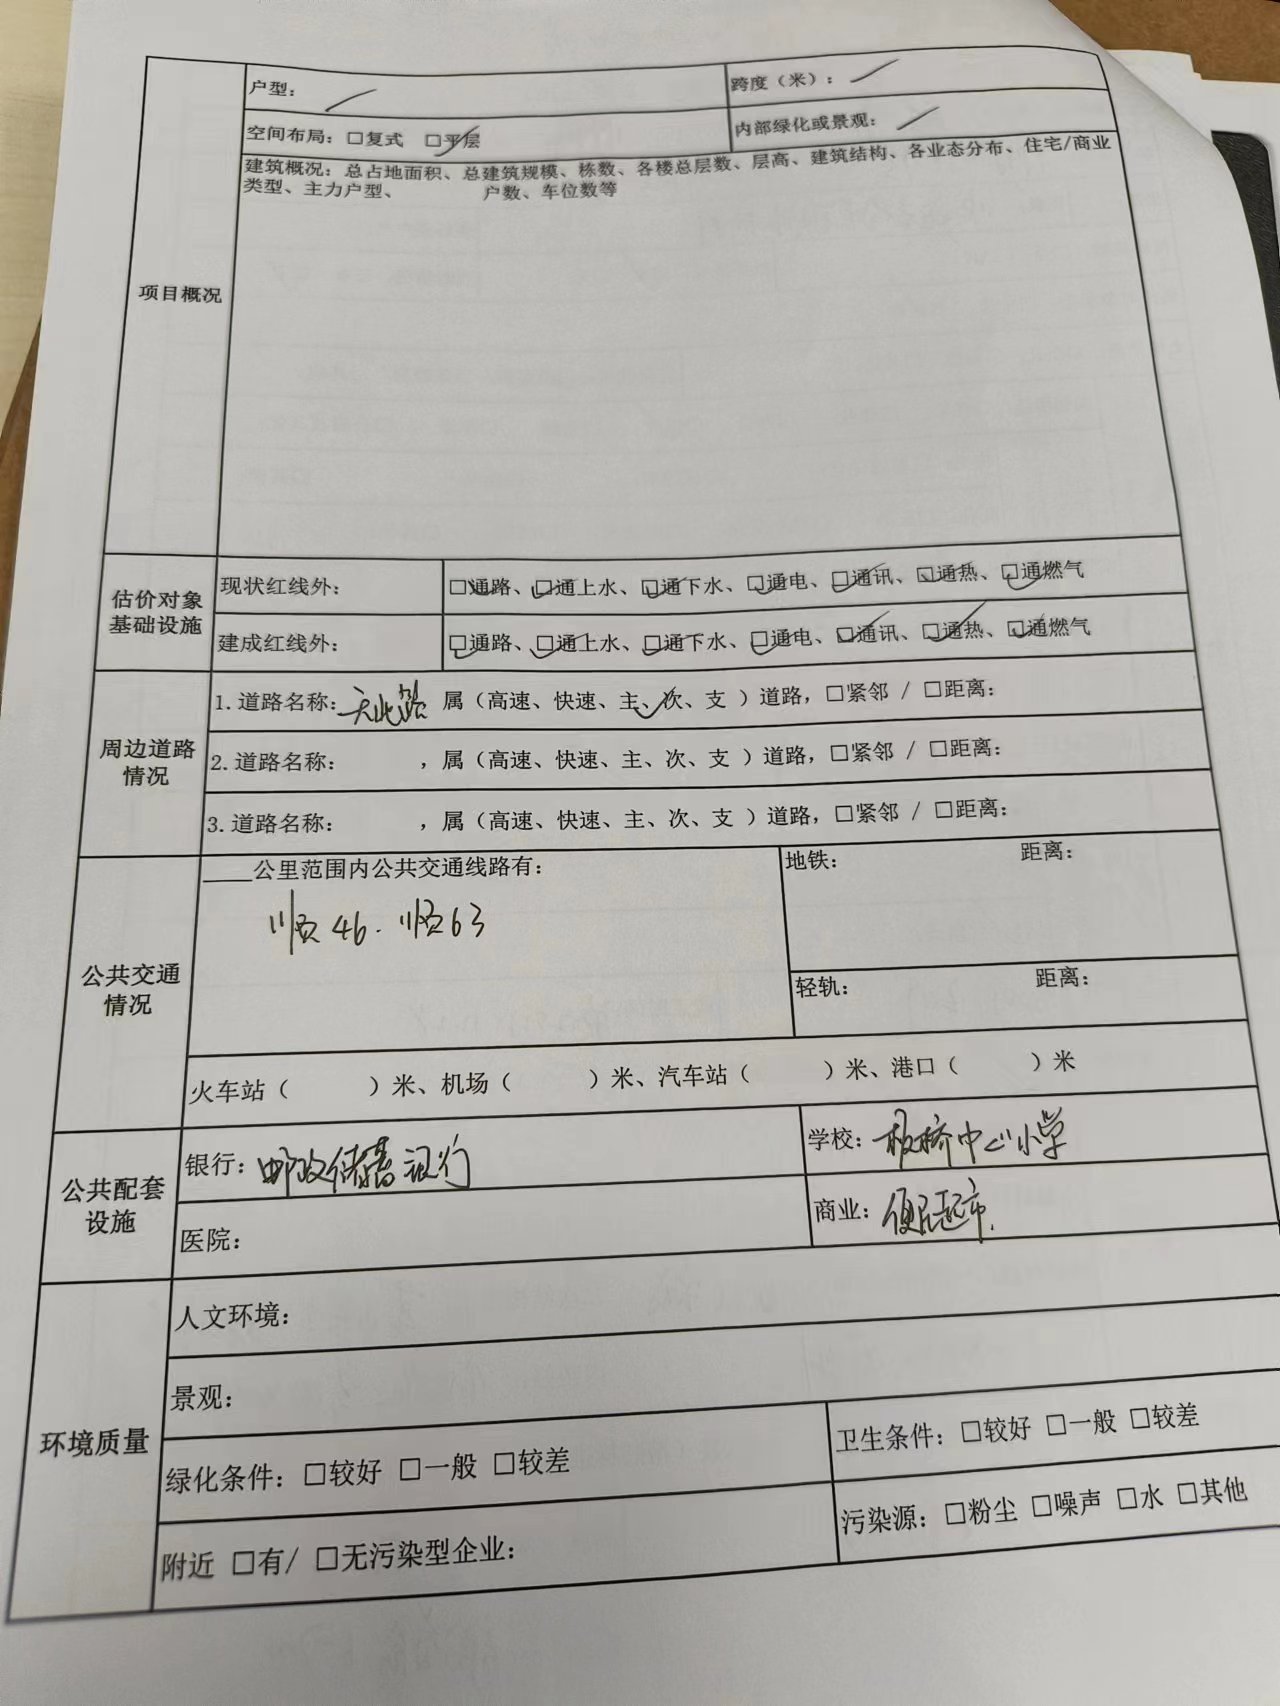 户型： /
跨度（米）： /
空间布局：□复式 ☑平层
内部绿化或景观： /
建筑概况：总占地面积、总建筑规模、栋数、各楼总层数、层高、建筑结构、各业态分布、住宅/商业
类型、主力户型、 户数、车位数等
项目概况
估价对象
基础设施
现状红线外：
☑通路、☑通上水、☑通下水、☑通电、☑通讯、☑通热、☑通燃气
建成红线外：
☑通路、☑通上水、☑通下水、☑通电、☑通讯、☑通热、☑通燃气
周边道路
情况
1.道路名称：天北路 属（高速、快速、主、次、支 ）道路，□紧邻 / □距离：
2.道路名称： ，属（高速、快速、主、次、支 ）道路，□紧邻 / □距离：
3.道路名称： ，属（高速、快速、主、次、支 ）道路，□紧邻 / □距离：
公共交通
情况
____公里范围内公共交通线路有：
顺46. 顺63
地铁： 距离：
轻轨： 距离：
火车站（ ）米、机场（ ）米、汽车站（ ）米、港口（ ）米
公共配套
设施
银行：邮政储蓄银行
学校：板桥中心小学
医院：
商业：便民超市.
环境质量
人文环境：
景观：
绿化条件：□较好 □一般 □较差
卫生条件：□较好 □一般 □较差
附近 □有/ □无污染型企业：
污染源：□粉尘 □噪声 □水 □其他